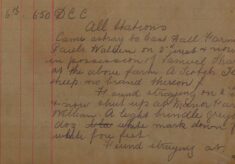 6th 6.50 D E C
All Stations
Came astray to East Hall Farm
Pauls Walden on 2nd inst & now
in possession of Samuel
at the above farm A Scotch
sheep no brand thereon
Found straying on
& now shut up at Manor Farm
William. A light brindle Grey
dog white mark down
white fore feet
Found straying at